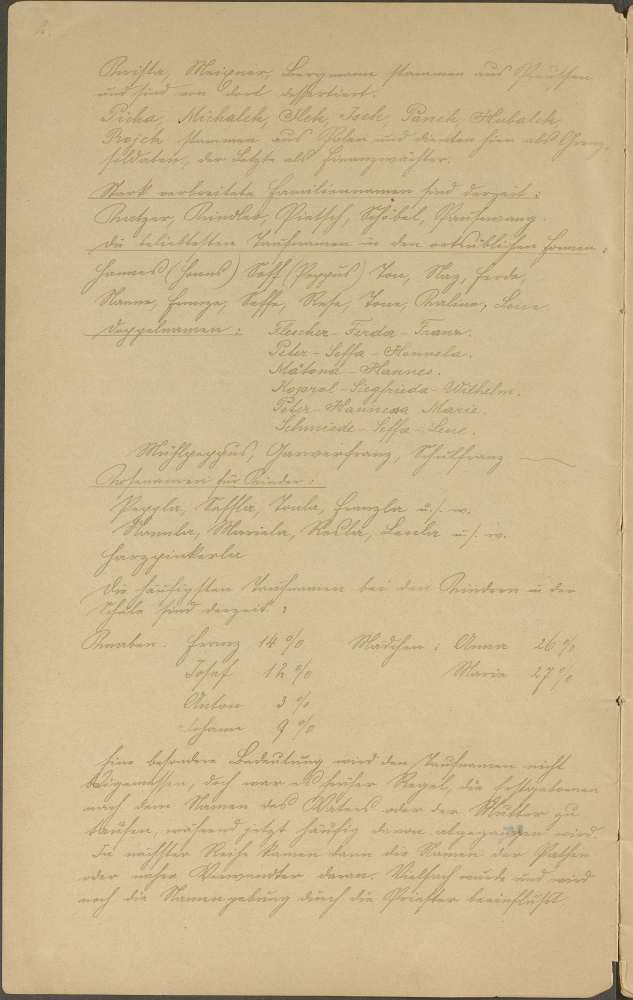 2.
Kwista, Meixner, Bergmann stammen aus Preußen
und sind von dort desertiert.
Picha, Michalek, Ilek, Jech, Panek, Hubalek,
Rojek stammen aus Polen und dienten hier als Grenz-
soldaten, der Letzte als Finanzwächter.
Stark verbreitete Familiennamen sind derzeit:
Kratzer, Kindler, Pietsch, Schöbel, Pausewang.
Die beliebtesten Taufnamen in den ortsüblichen Formen:
Hannes (Hanns) Seff (Peppus) Ton, Naz, Ferde,
Nanne, Franze, Seffe, Rese, Tone, Kaline, Lene
Doppelnamen: Flescher-Ferda-Franz.
Peter-Seffa-Hannela.
Mátona-Hannes.
Kopral-Siegfrieda-Wilhelm.
Peter-Hannesa Marie.
Schmiede-Seffa-Lene.
Mühlpeppus, Garberfranz, Schulfranz
Kosenamen für Kinder:
Peppla, Seffla, Tonla, Franzla u. s. w.
Nannla, Mariela, Resla, Lenla u. s. w.
Harzpinkerla
Die häufigsten Taufnamen bei den Kindern in der
Schule sind derzeit:
Knaben: Franz 14 % Mädchen: Anna 26 %
Josef 12 % Marie 27 %
Anton 3 %
Johann 9 %
Eine besondere Bedeutung wird den Taufnamen nicht
beigemessen, doch war es früher Regel, die Erstgebornen
nach dem Namen des Vaters oder der Mutter zu
taufen, während jetzt häufig davon abgegangen wird.
In nächster Reihe kamen dann die Namen der Pathen
oder naher Verwandter daran. Vielfach wurde und wird
noch die Namengebung durch die Priester beeinflußt.